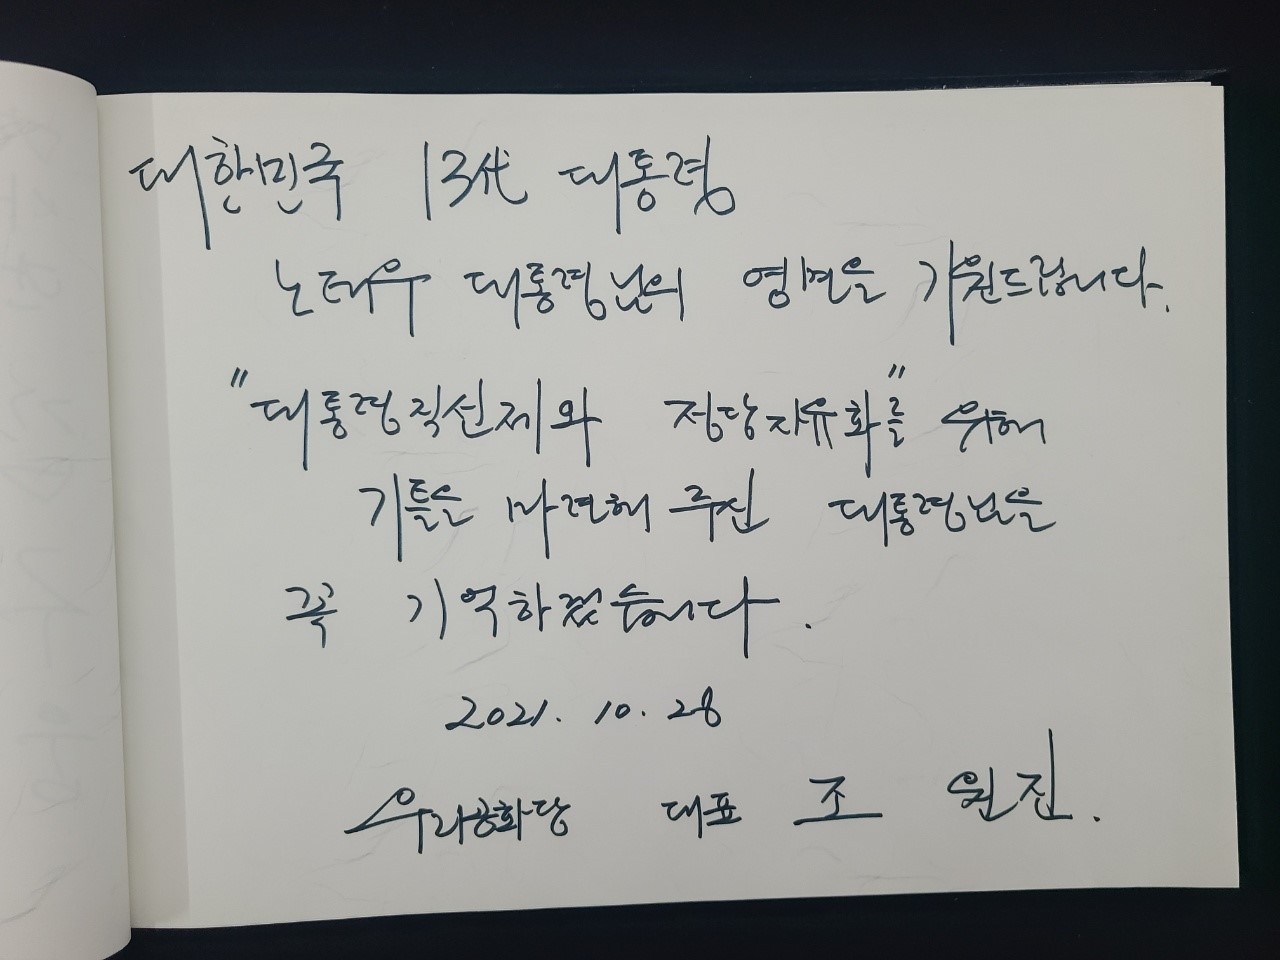 대한민국 13代 대통령
노태우 대통령님의 영면을 기원드립니다.
"대통령직선제와 정당자유화"를 위해
기틀을 마련해 주신 대통령님을
꼭 기억하겠습니다.
2021. 10. 28
우리공화당 대표 조원진.